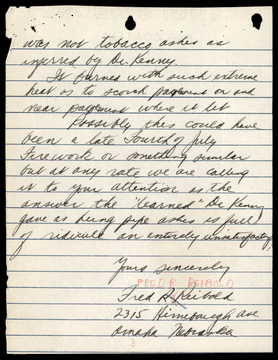 was not tobacco ashes as
inferred by Dr. Kenny.
It burned with such extreme
heat as to scorch pavement on and
near pavement where it lit
Possibly this could have
been a late Fourth of July
Firework or something similar
but at any rate we are calling
it to your attention as the
answer the "learned" Dr Kenny
gave as being pipe ashes is full
of ridicule an entirely unsatisfactory,
Yours sincerely
FRED R REIBOLD
Fred R Reibold
2315 Ave
Omaha Nebraska
3